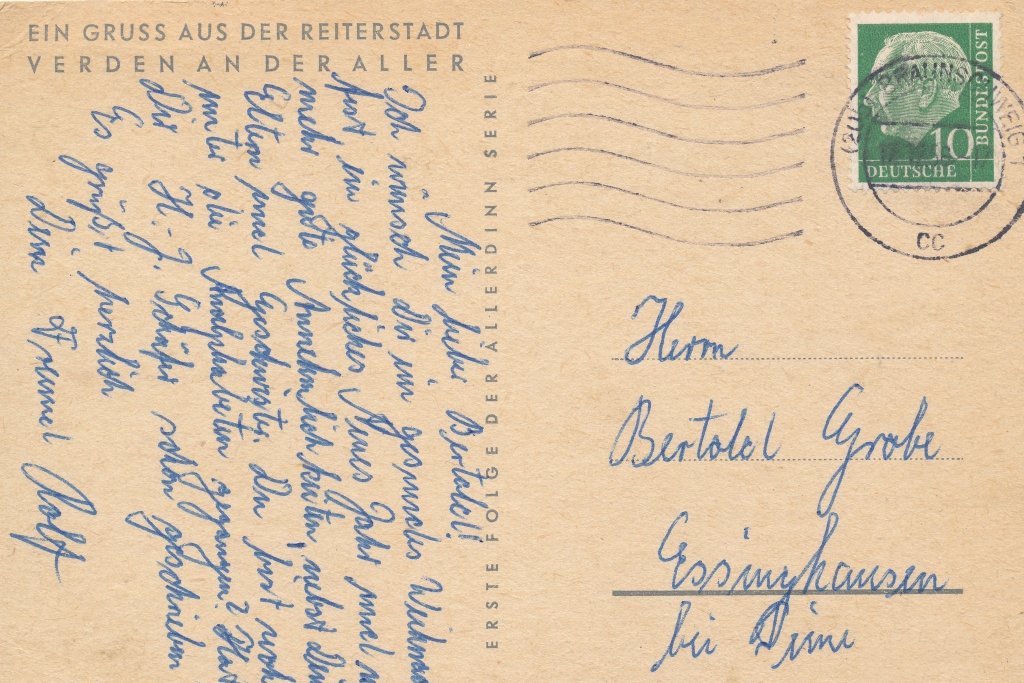 EIN GRUSS AUS DER REITERSTADT
VERDEN AN DER ALLER
ERSTE FOLGE DER ALLERDINN SERIE
Mein lieber Bertold!
Ich wünsch Dir ein gesundes Weihnac
fest ein glückliches Neues Jahr und n
mehr gute Annehmlichkeiten, nebst Dein
Eltern und Geschwister. Du bist woh
unter die Analphabeten gegangen? Hat
Dir H.-J. Schäfer schon geschrieben
Es grüßt herzlich
Dein Freund Rolf
BRAUNSCHWEIG
cc
10
DEUTSCHE
BUNDESPOST
Herrn
Bertold Grobe
Essinghausen
bei Peine